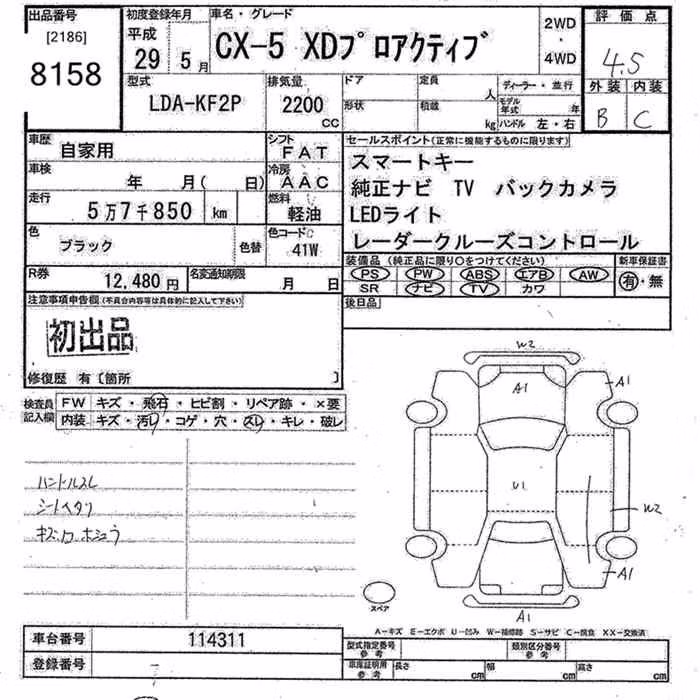 出品番号 初度登録年月 車名・グレード 2WD・4WD 評価点
[2186] 平成
8158 29 5月 CX-5 XDプロアクティブ 4.5
型式 排気量 ドア 定員 人 ディーラー・並行 外装 内装
LDA-KF2P 2200 CC 形状 積載 kg モデル年式 年 B C
ハンドル 左・右
車歴 自家用 シフト FAT セールスポイント(正常に機能するものに限ります)
車検 年 月( 日) 冷房 AAC スマートキー
走行 5万7千850 km 燃料 軽油 純正ナビ TV バックカメラ
LEDライト
色 ブラック 色替 色コード 41W レーダークルーズコントロール
装備品(純正品に限り○をつけてください) 新車保証書
R券 12,480円 名変通知期限 月 日 PS PW ABS エアB AW 有・無
SR ナビ TV カワ
注意事項申告欄(不具合内容等は具体的に記入して下さい) 後日品
初出品
修復歴 有〔箇所 〕
検査員記入欄 FW キズ・飛石・ヒビ割・リペア跡・×要
内装 キズ・汚レ・コゲ・穴・スレ・キレ・破レ
W2
A1 A1
ハンドルスレ
シートヘタリ U1
キズ、ワ ホシュウ W2
A1
スペア
A1
A-キズ E-エクボ U-凹み W-補修跡 S-サビ C-腐食 XX-交換済
車台番号 114311 型式指定番号 参考 類別区分番号 参考
登録番号 車庫証明用 参考 長さ cm 幅 cm 高さ cm